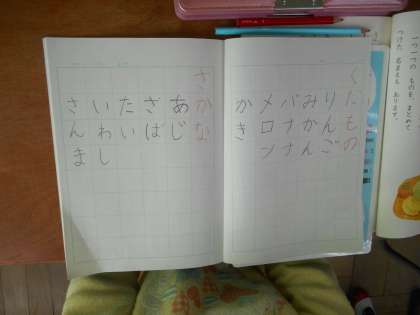 一つ一つの ものを、まとめて
つけた 名まえも あります。
くだもの
りんご
みかん
バナナ
メロン
かき
さかな
あじ
さば
たい
いわし
さんま